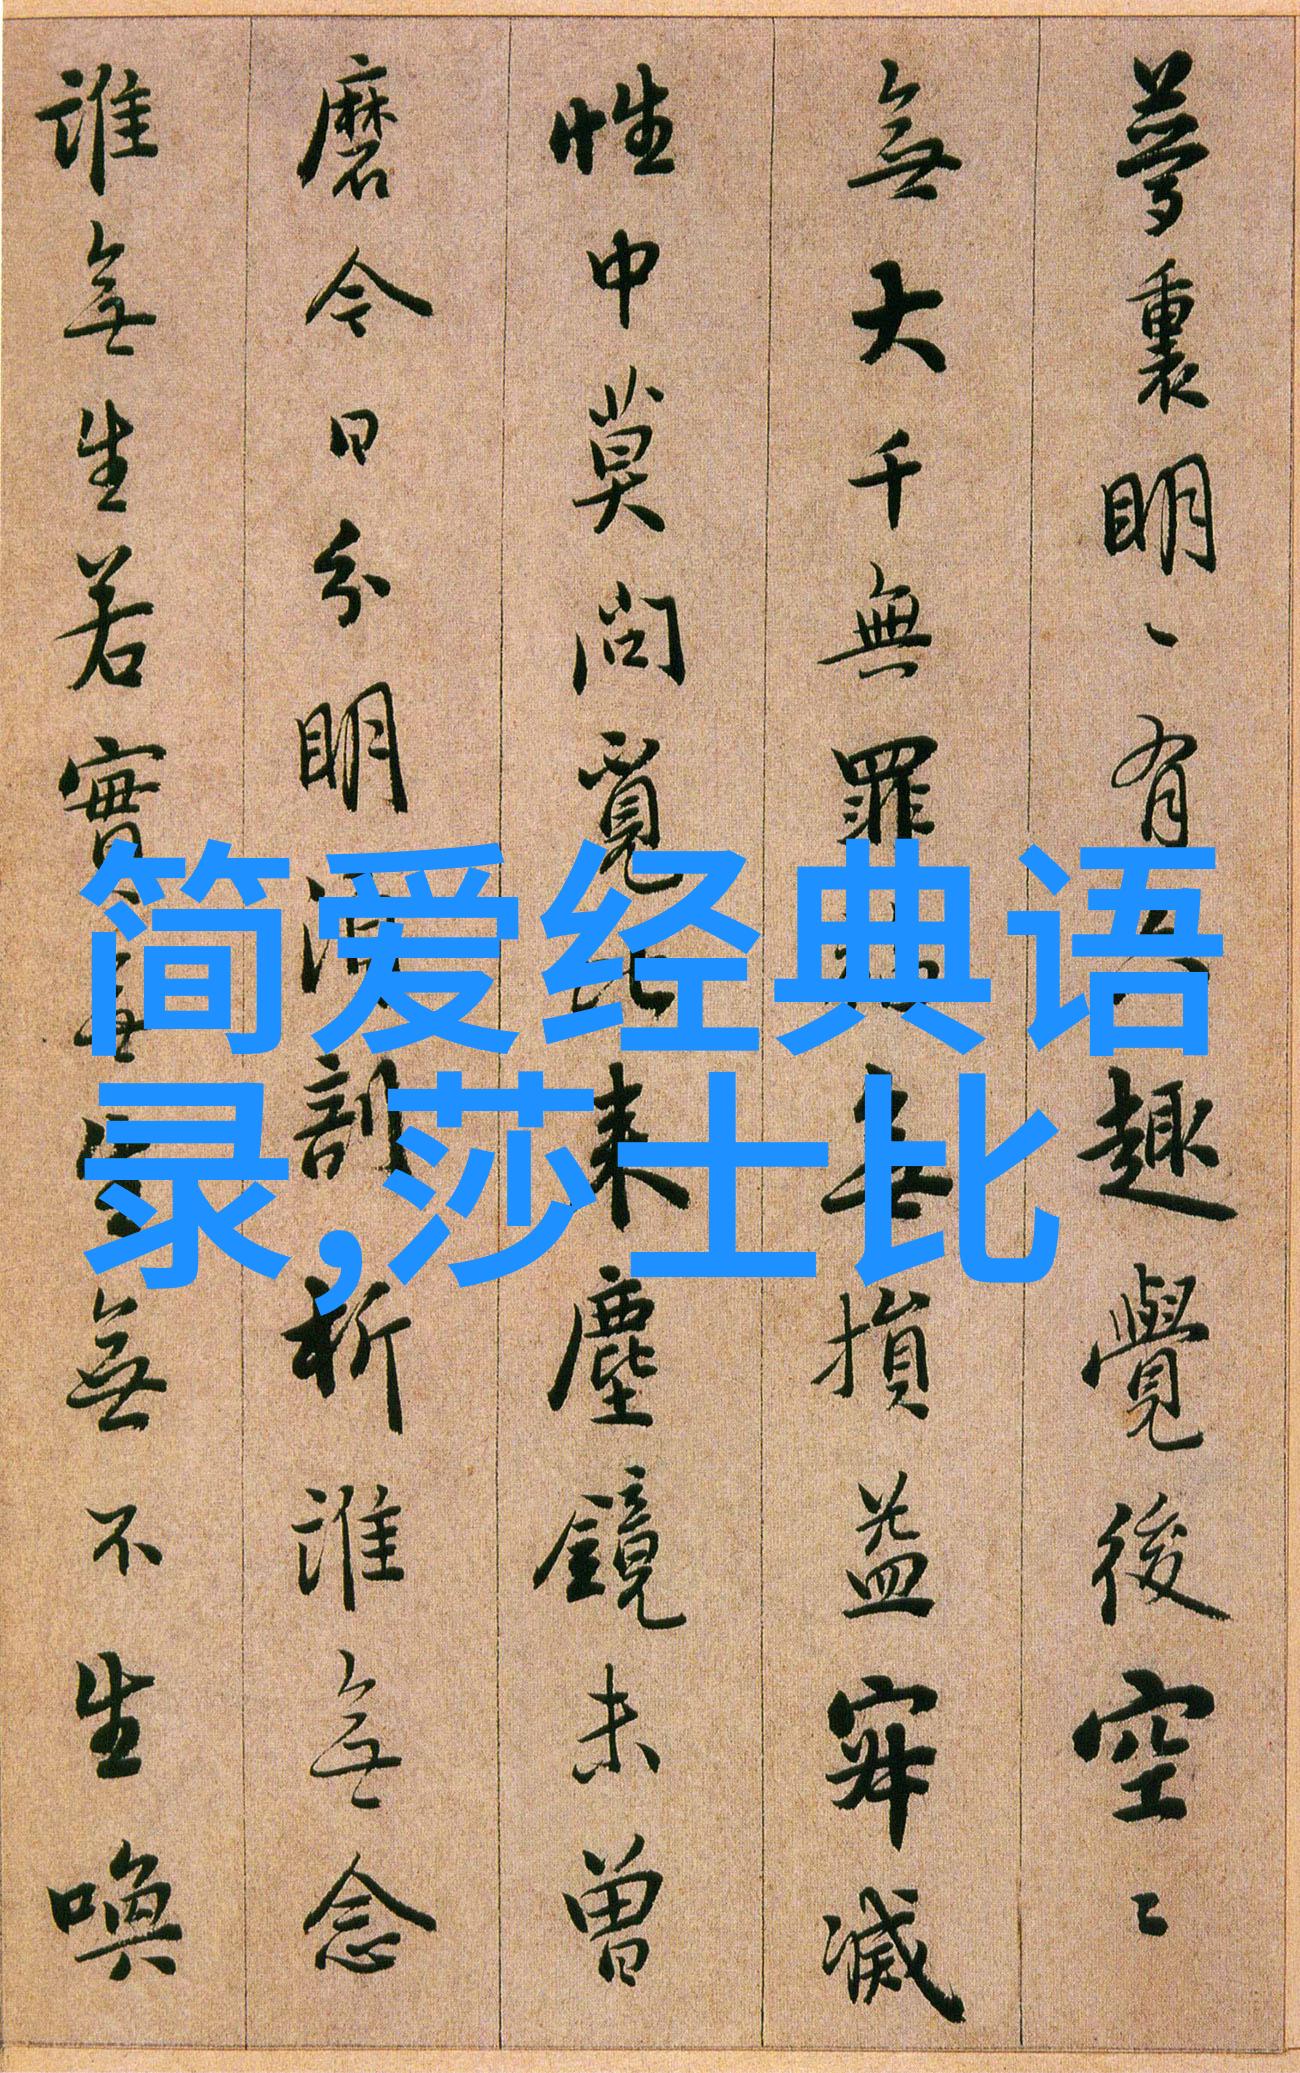 夢裏明〻有六趣覺後空〻
無大千無罪福無損益寂滅
性中莫問覓比來塵鏡未曾
磨今日分明須剖析誰無念
誰無生若實無生無不生喚
简爱经典语
录,莎士比